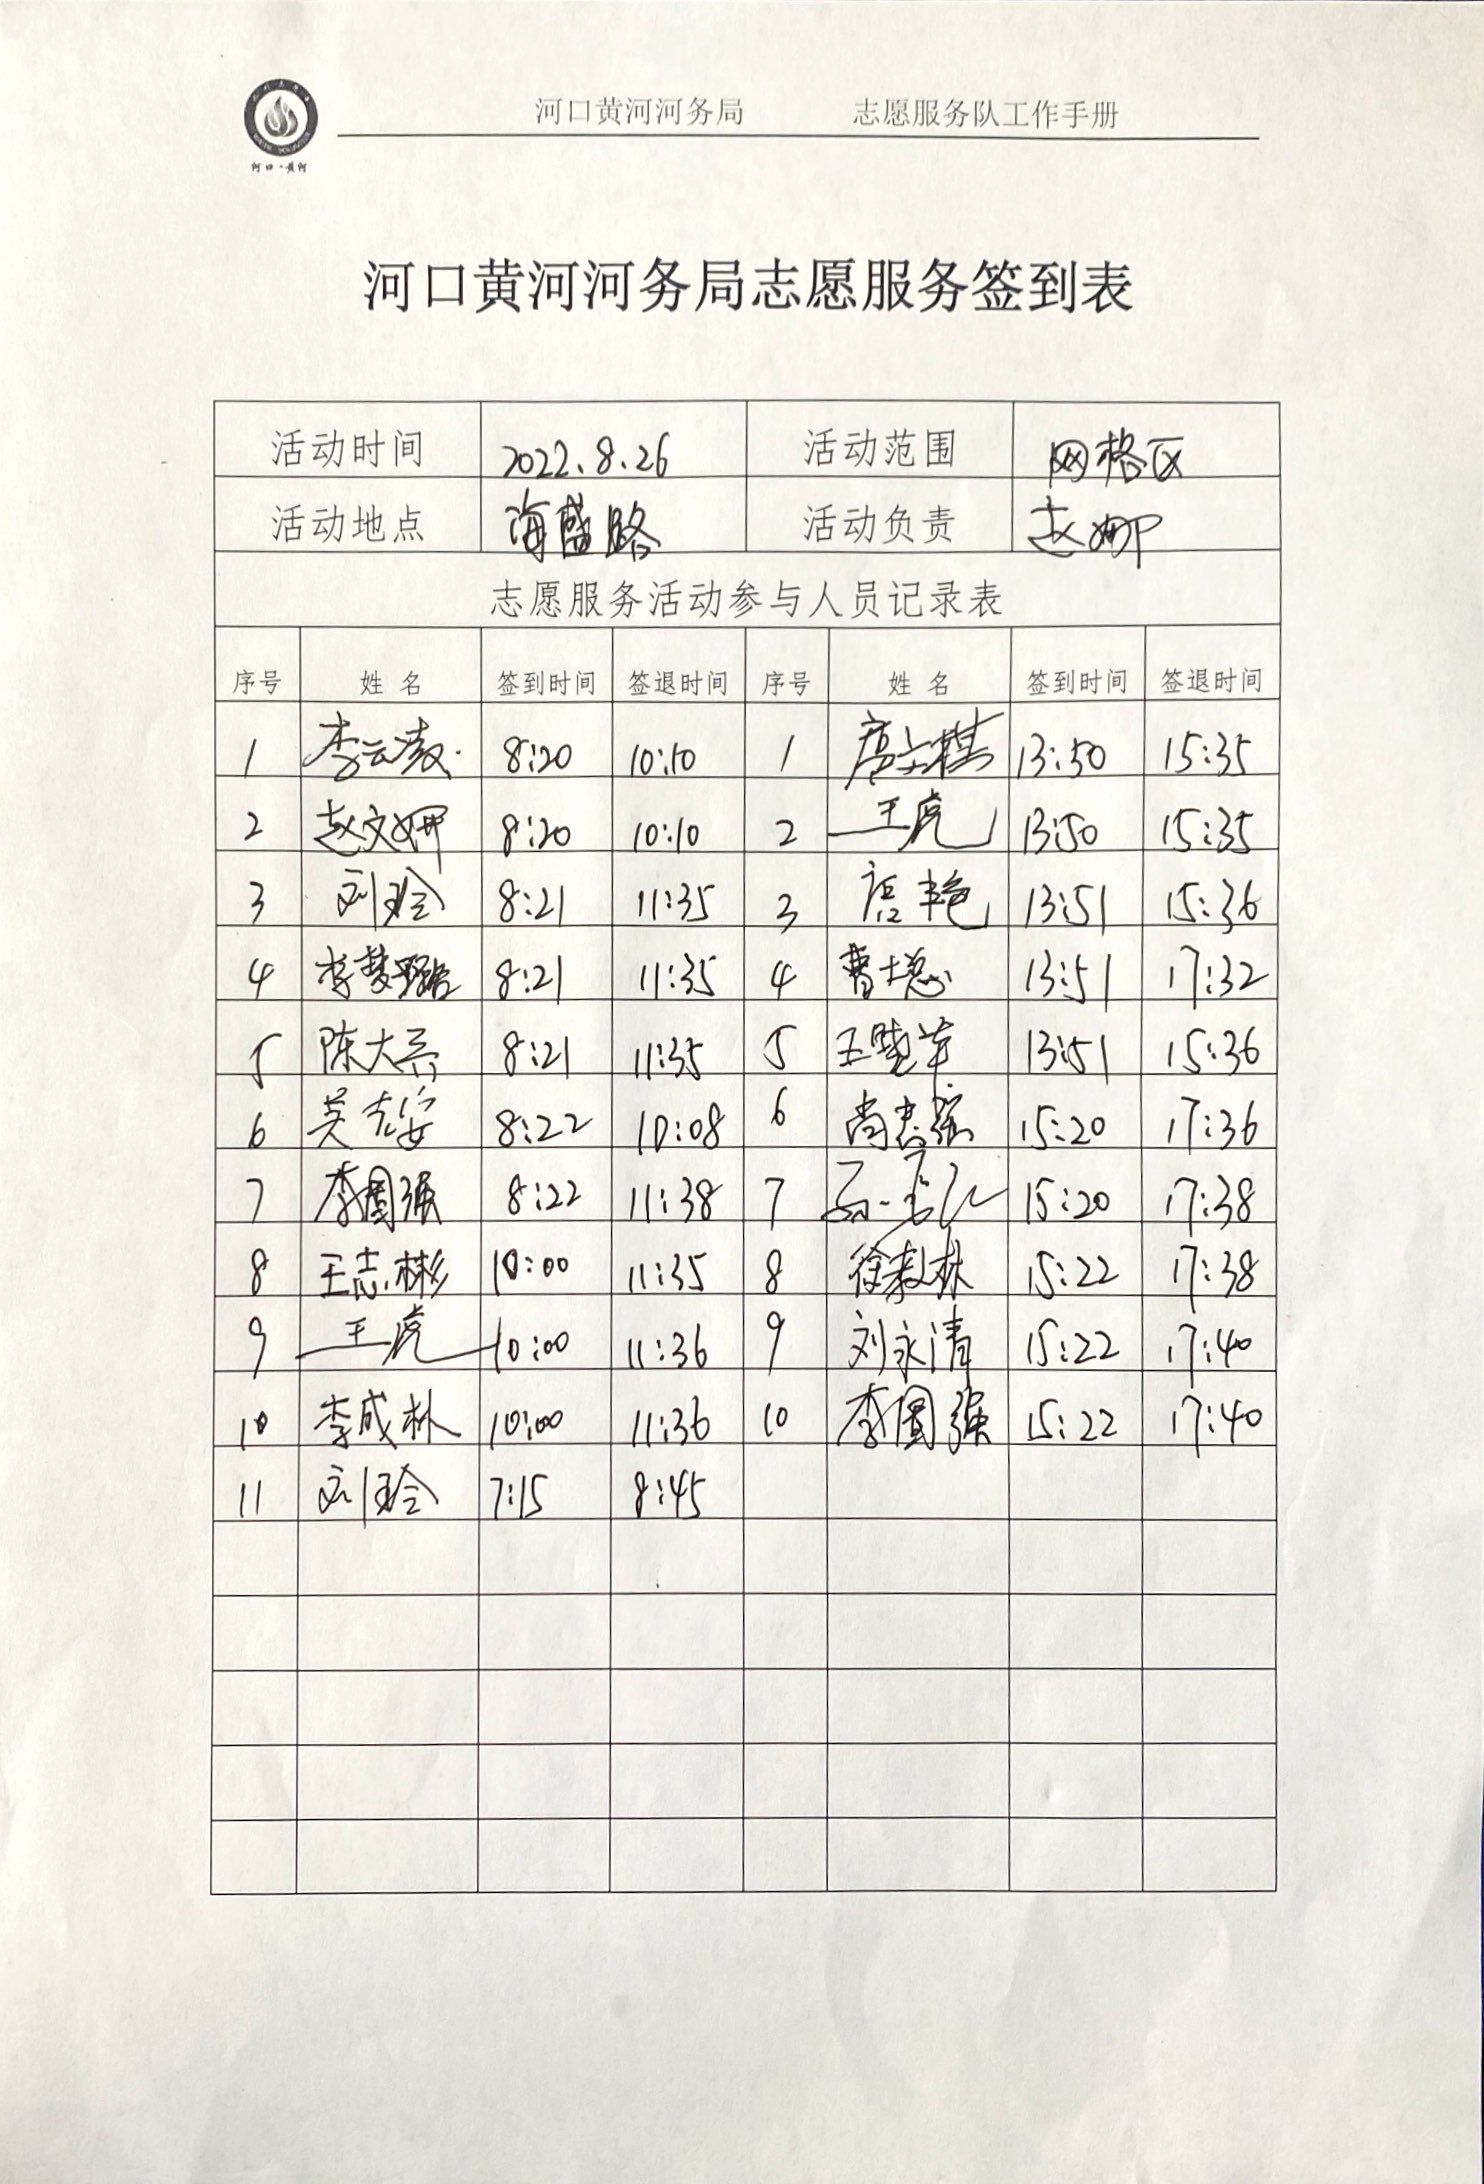 河口黄河河务局 志愿服务队工作手册
河口·黄河
河口黄河河务局志愿服务签到表
活动时间 2022.8.26 活动范围 网格区
活动地点 海盛路 活动负责 赵娜
志愿服务活动参与人员记录表
序号 姓名 签到时间 签退时间 序号 姓名 签到时间 签退时间
1 李云凌 8:20 10:10 1 13:50 15:35
2 赵文娜 8:20 10:10 2 王虎 13:50 15:35
3 刘玲 8:21 11:35 3 唐艳 13:51 15:36
4 李梦璐 8:21 11:35 4 曹士忠 13:51 17:32
5 陈大亮 8:21 11:35 5 王晓华 13:51 15:36
6 吴志安 8:22 10:08 6 尚志强 15:20 17:36
7 李国强 8:22 11:38 7 15:20 17:38
8 王志彬 10:00 11:35 8 徐毅林 15:22 17:38
9 王虎 10:00 11:36 9 刘永清 15:22 17:40
10 李成林 10:00 11:36 10 李国强 15:22 17:40
11 刘玲 7:15 8:45